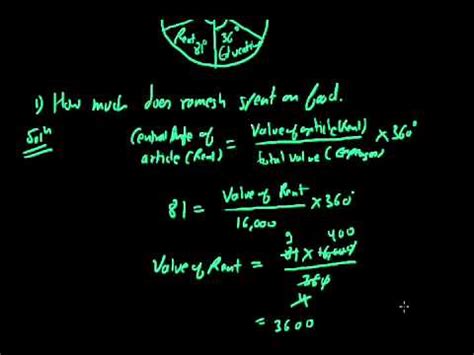 Rent 36°
81° Education
1) How much does romesh spent on food.
Solⁿ Central Angle of article (Rent) = Value of article (Rent) / total value (Expenses) × 360°
81 = Value of Rent / 16,000 × 360°
9 400
Value of Rent = 81 × 16,000 / 360
4
= 3600